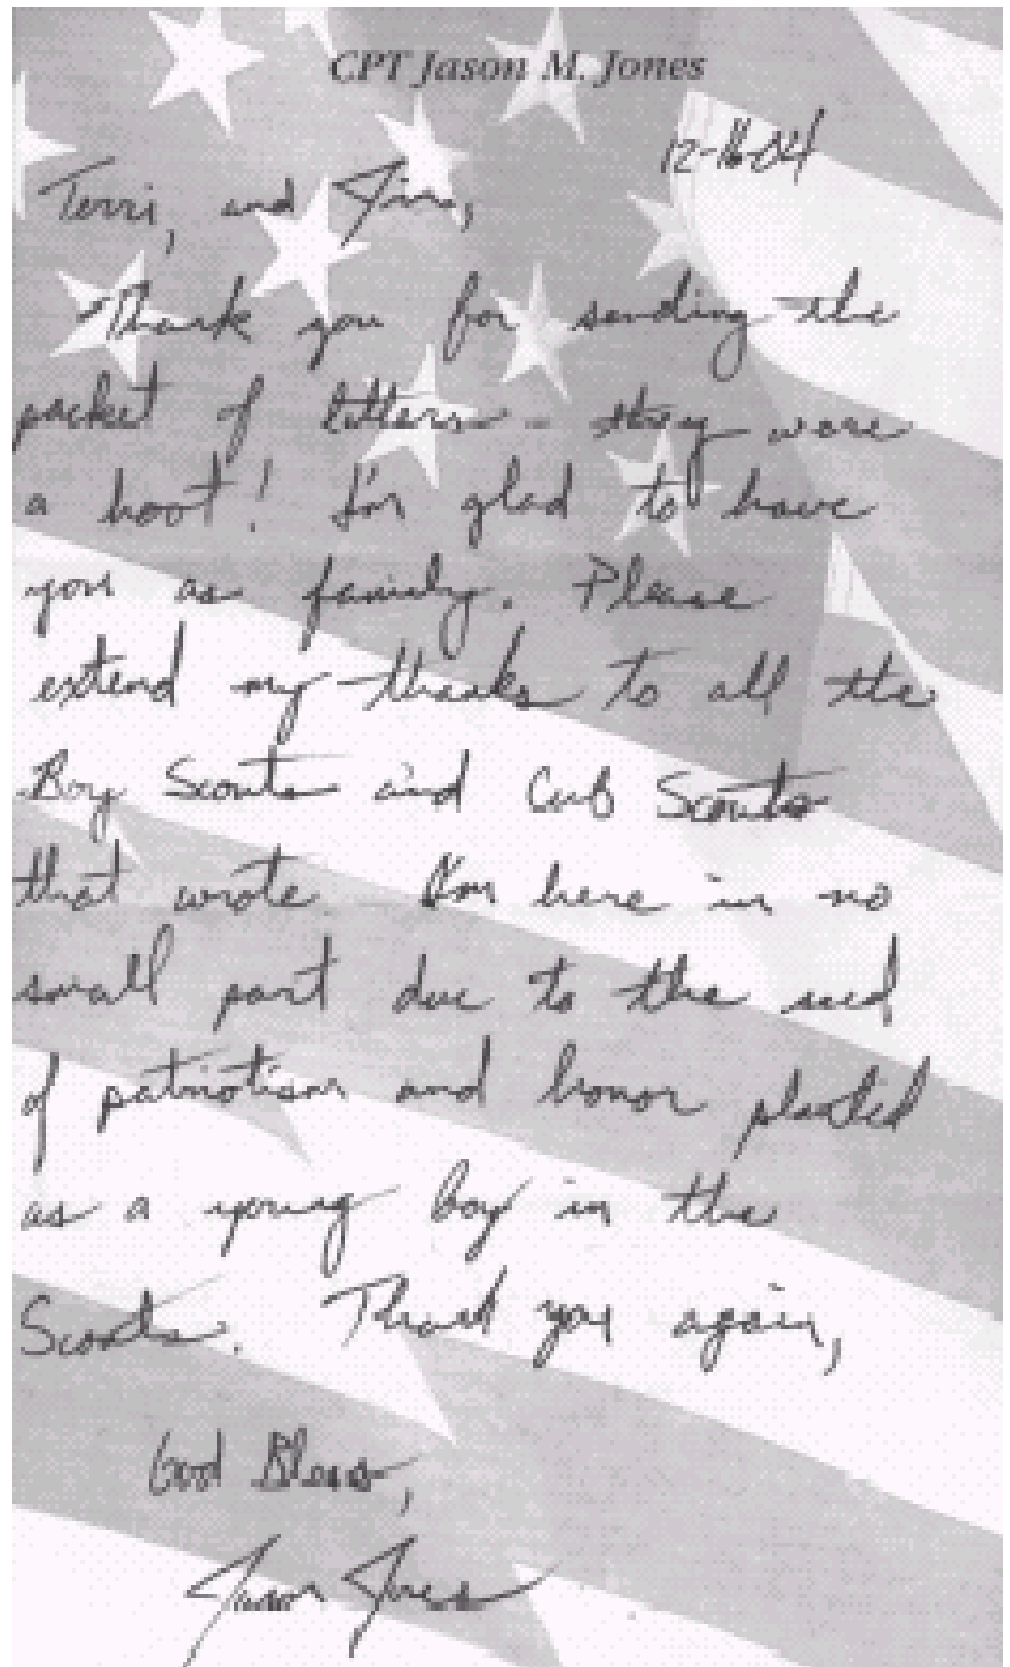 CPT Jason M. Jones
12-16-04
Terri, and Jim,
Thank you for sending the
packet of letters - they were
a hoot! I'm glad to have
you as family. Please
extend my thanks to all the
Boy Scouts and Cub Scouts
that wrote I'm here in no
small part due to the seed
of patriotism and honor planted
as a young boy in the
Scouts. Thank you again,
God Bless,
Jason Jones